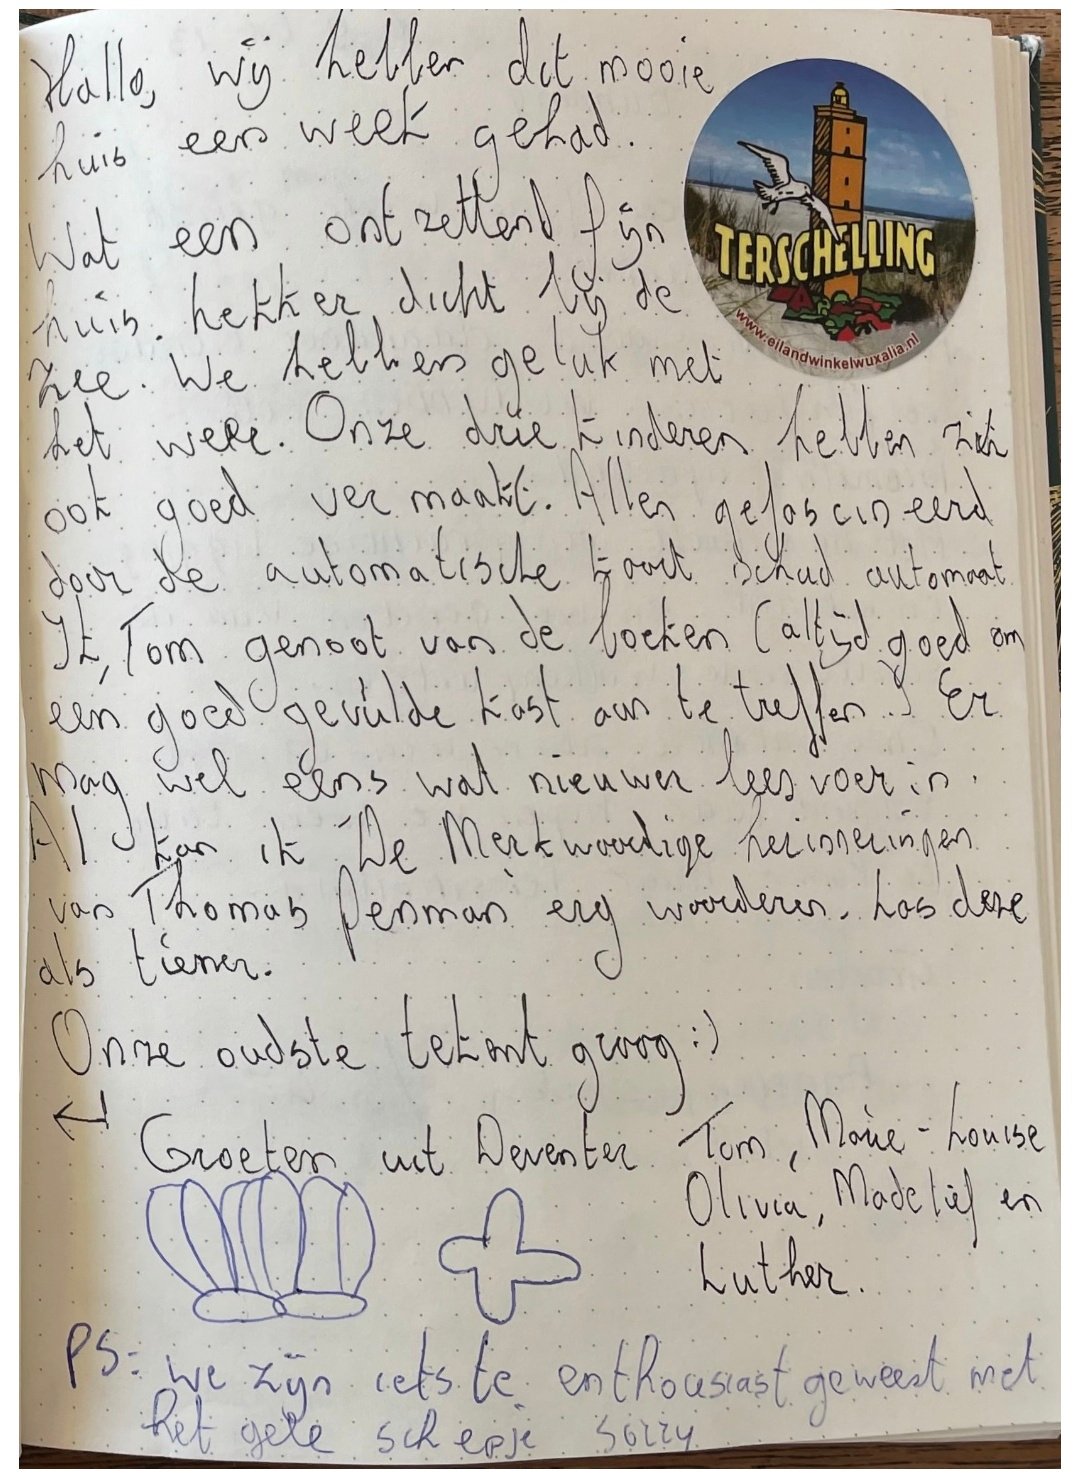 Hallo, wij hebben dit mooie
huis een week gehad.
Wat een ontzettend fijn
huis. Lekker dicht bij de
zee. We hebben geluk met
het weer. Onze drie kinderen hebben zich
ook goed vermaakt. Allen gefascineerd
door de automatische kaart schud automaat
Ik, Tom genoot van de boeken (altijd goed om
een goed gevulde kast aan te treffen.) Er
mag wel eens wat nieuwer leesvoer in.
Al kan ik De Merkwaardige herinneringen
van Thomas Penman erg waarderen. Las deze
als tiener.
Onze oudste tekent graag :)
←
Groeten uit Deventer Tom, Marie-Louise
Olivia, Madelief en
Luther.
PS: we zijn iets te enthousiast geweest met
het gele schepje sorry
TERSCHELLING
www.eilandwinkelwuxalia.nl